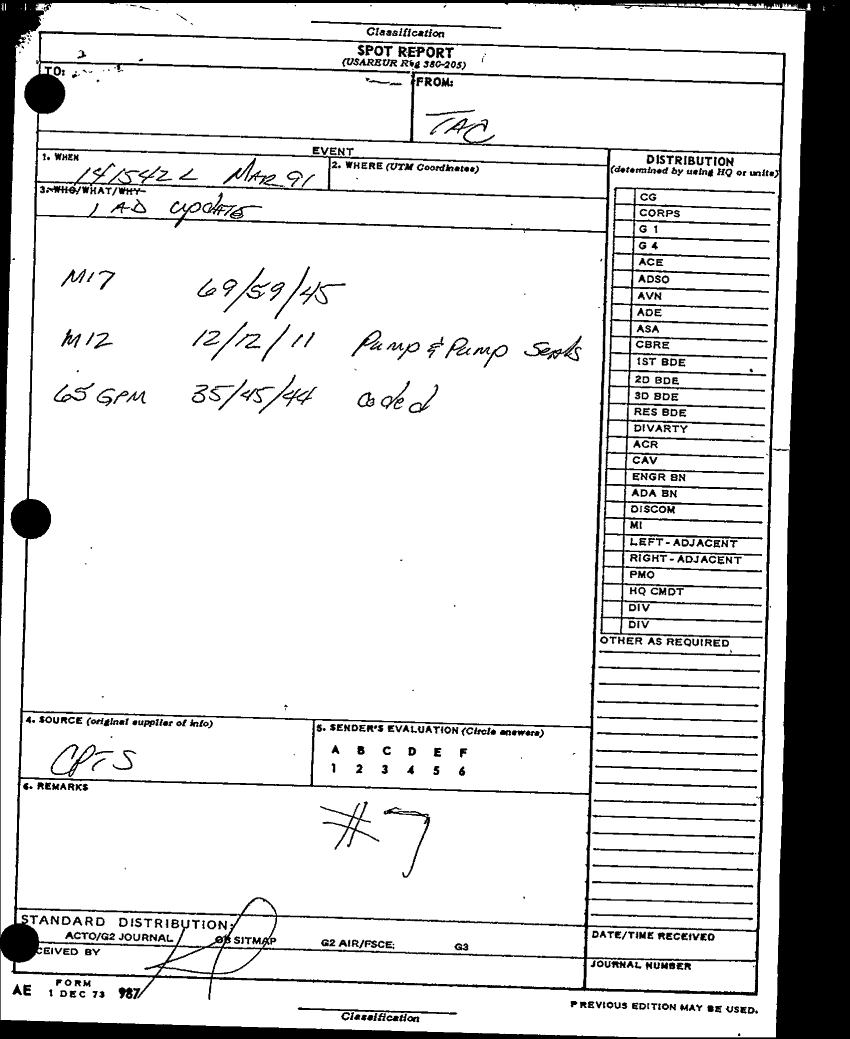 Classification
SPOT REPORT
(USAREUR Reg 380-205)
TO:
FROM:
TAC
EVENT
1. WHEN
141542 L MAR 91
2. WHERE (UTM Coordinates)
3. WHO/WHAT/WHY
1 AD update
M17 69/59/45
M12 12/12/11 Pump & Pump Seals
65 GPM 35/45/44 coded
DISTRIBUTION
(determined by using HQ or units)
CG
CORPS
G 1
G 4
ACE
ADSO
AVN
ADE
ASA
CBRE
1ST BDE
2D BDE
3D BDE
RES BDE
DIVARTY
ACR
CAV
ENGR BN
ADA BN
DISCOM
MI
LEFT-ADJACENT
RIGHT-ADJACENT
PMO
HQ CMDT
DIV
DIV
OTHER AS REQUIRED
4. SOURCE (original supplier of info)
5. SENDER'S EVALUATION (Circle answers)
A B C D E F
1 2 3 4 5 6
6. REMARKS
#7
STANDARD DISTRIBUTION:
ACTO/G2 JOURNAL SITMAP G2 AIR/FSCE; G3
CEIVED BY
DATE/TIME RECEIVED
JOURNAL NUMBER
AE FORM 1 DEC 73 987
PREVIOUS EDITION MAY BE USED.
Classification